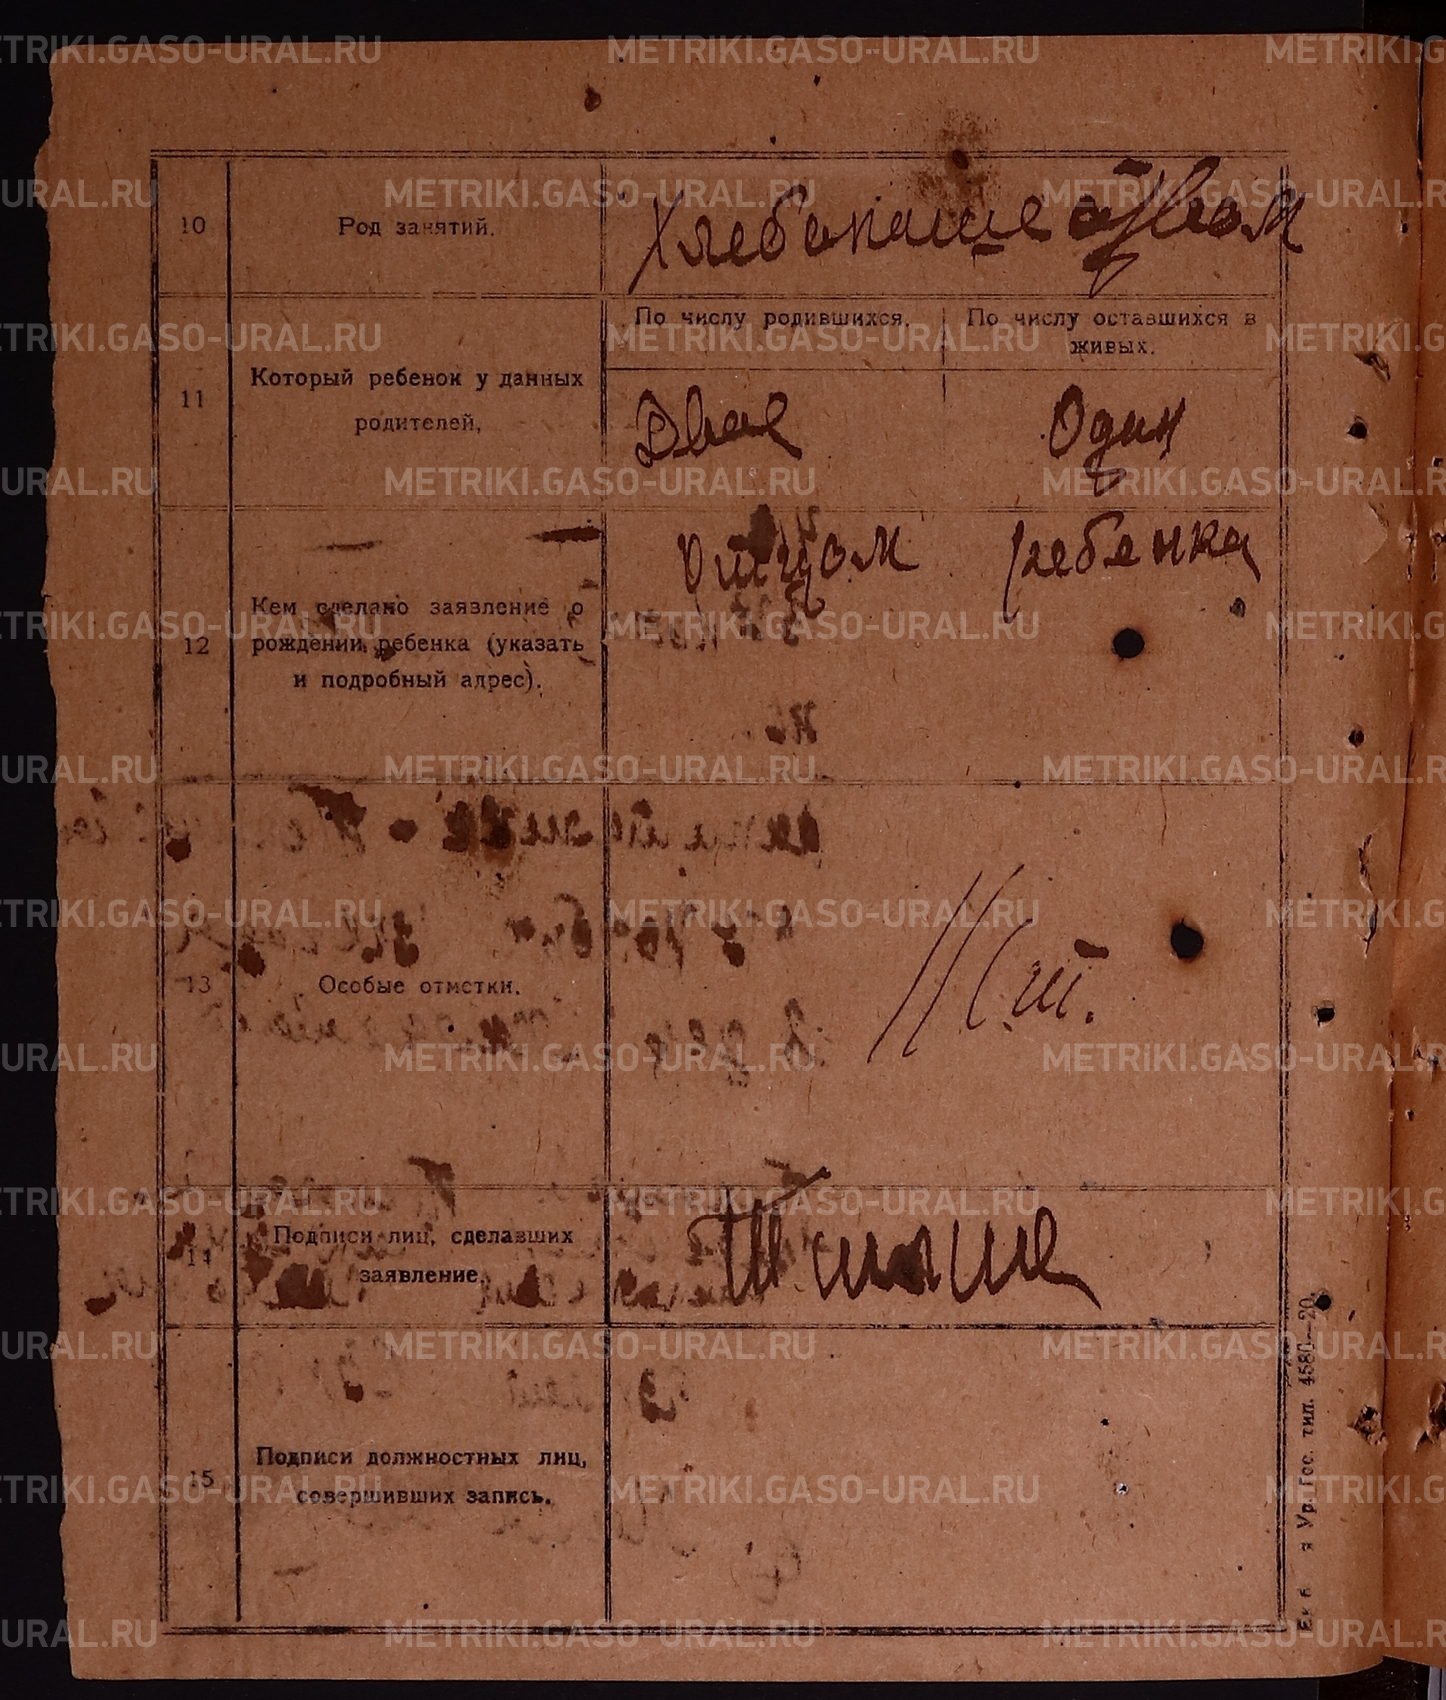 10
Род занятий.
Хлебопашеством
11
Который ребенок у данных
родителей,
По числу родившихся.
По числу оставшихся в
живых.
Двое
Один
12
Кем сделано заявление о
рождении ребенка (указать
и подробный адрес).
Отцом ребенка
13
Особые отметки.
14
Подписи лиц, сделавших
заявление.
15
Подписи должностных лиц,
совершивших запись.
Ур. Гос. тип. 4580—20.
METRIKI.GASO-URAL.RU